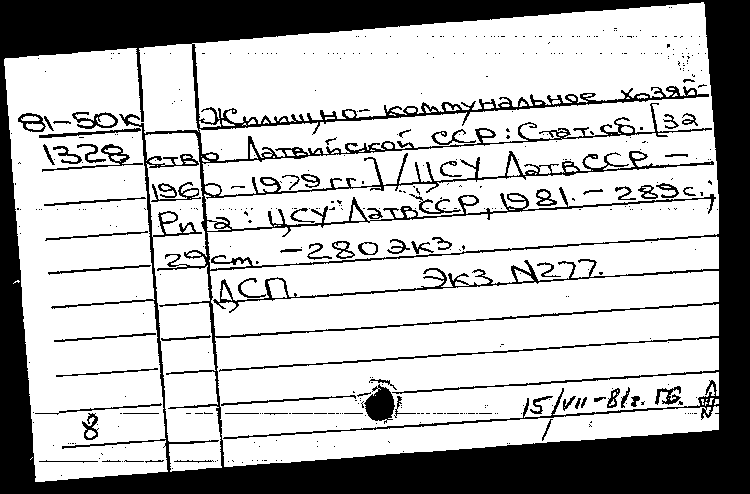 81-50к Жилищно-коммунальное хозяй-
1328 ство Латвийской ССР: Стат. сб. [за
1960-1979 гг.] / ЦСУ ЛатвССР. -
Рига: ЦСУ ЛатвССР, 1981. - 289 с.;
29 см. - 280 экз.
ДСП. Экз. N277.
15/VII-81г. ГБ.
8